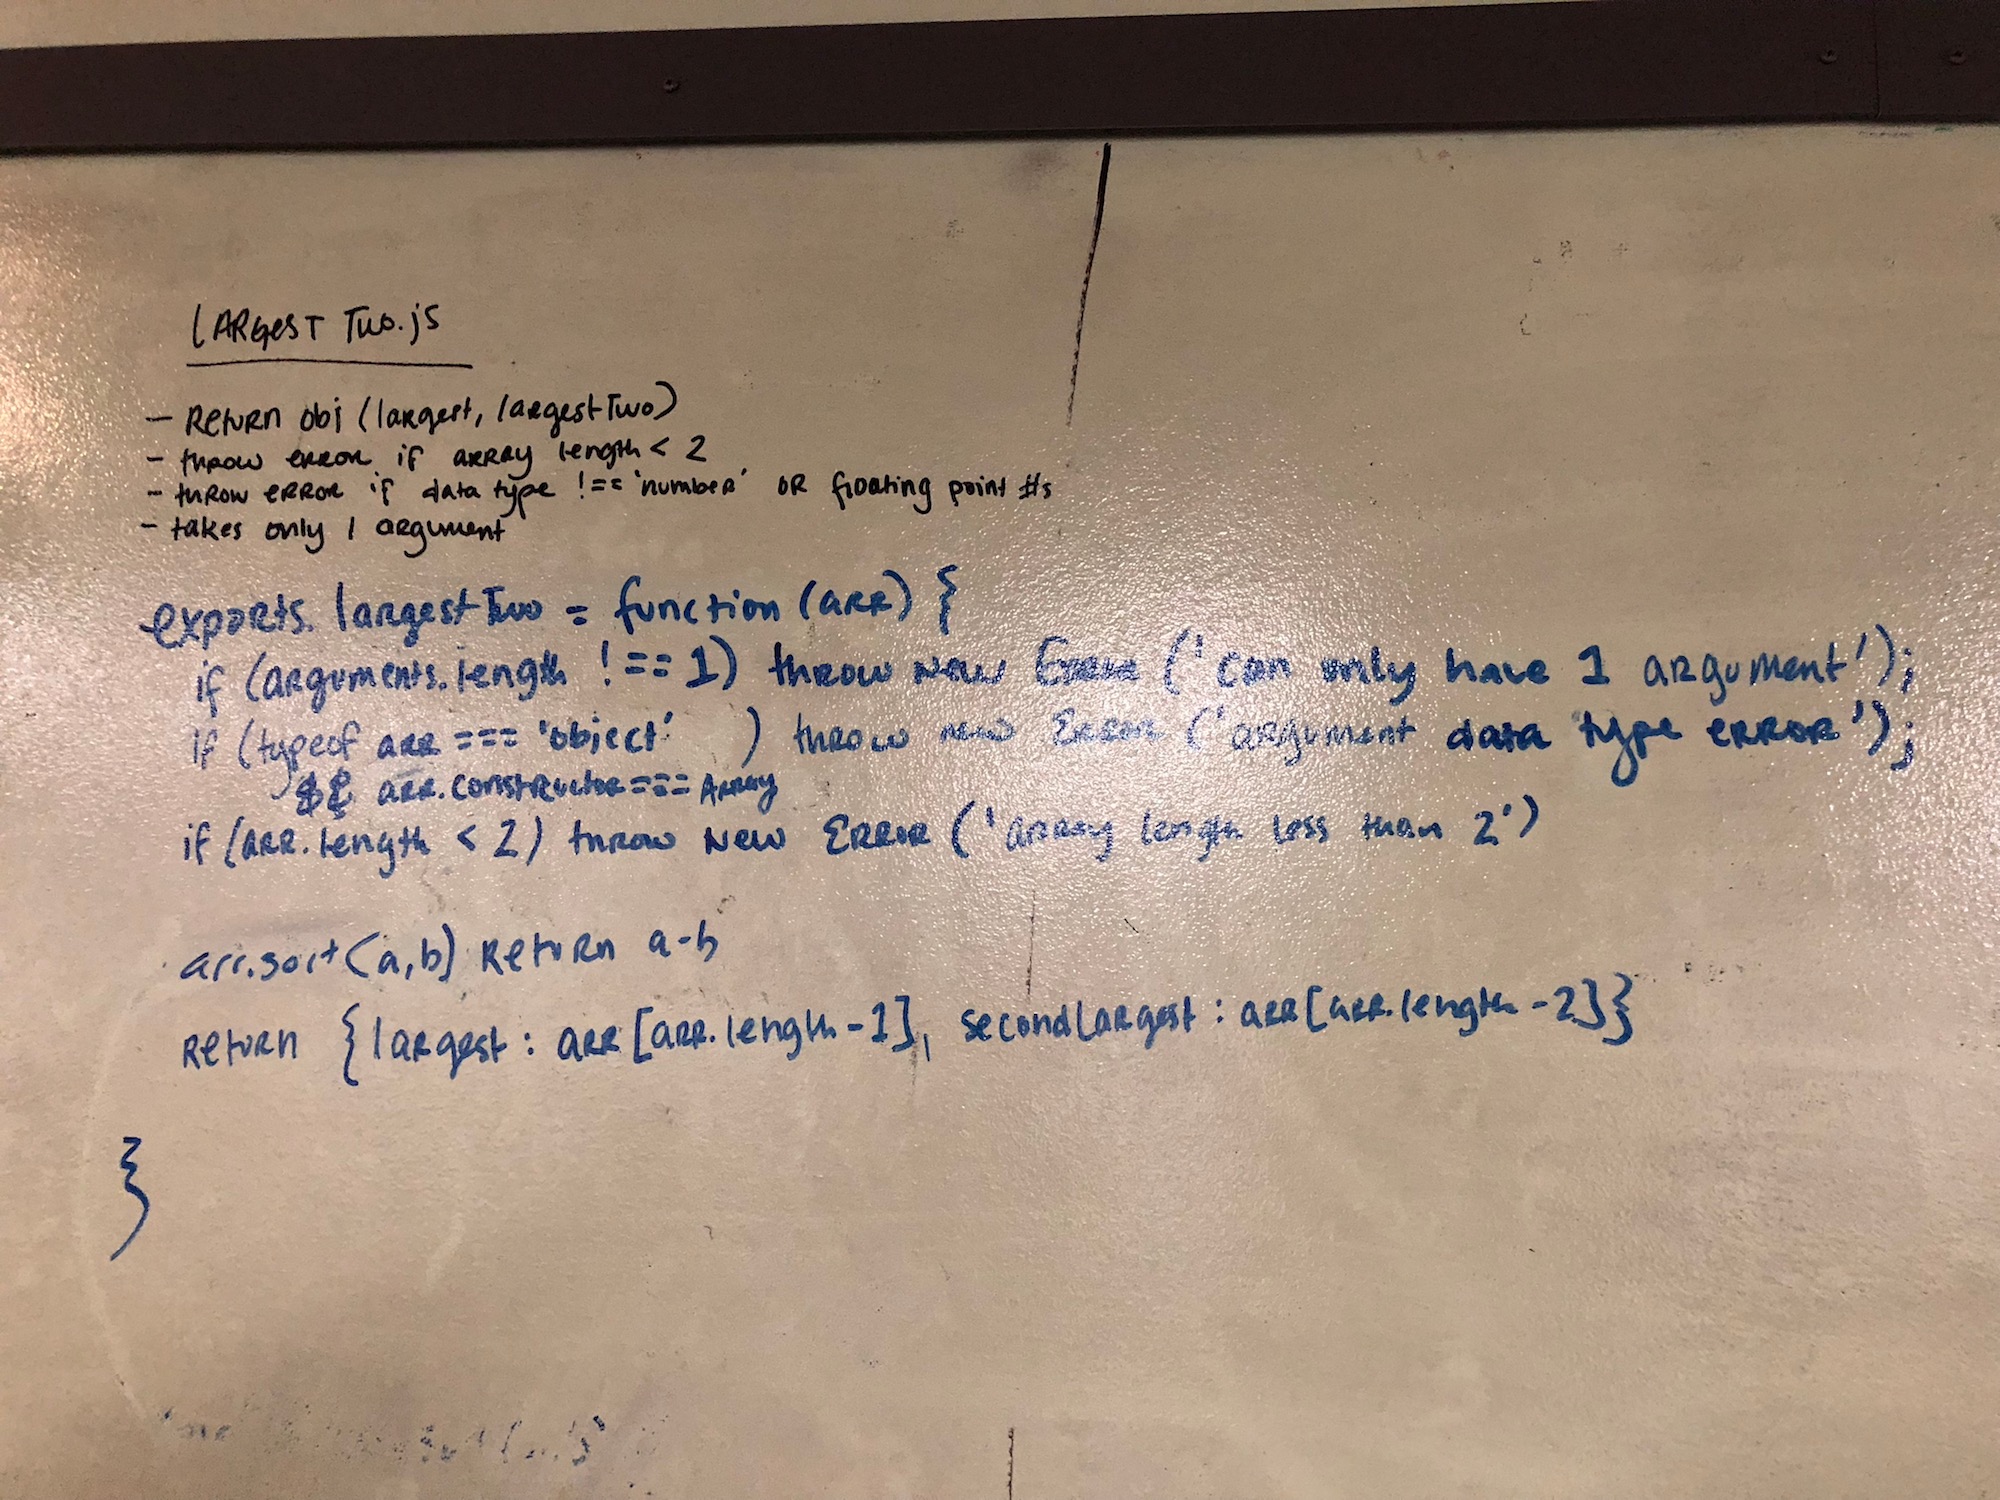 LARGEST Two.js
- Return obj (largest, largestTwo)
- throw error if array length < 2
- throw error if data type !== 'number' OR floating point #s
- takes only 1 argument
exports. largestTwo = function (arr) {
if (arguments.length !== 1) throw new Error ('can only have 1 argument');
if (typeof arr === 'object' ) throw new Error ('argument data type error');
&& arr.constructor === Array
if (arr.length < 2) throw new Error ('array length less than 2')
arr.sort (a,b) return a-b
return {largest : arr [arr.length-1], secondLargest : arr[arr.length-2]}
}